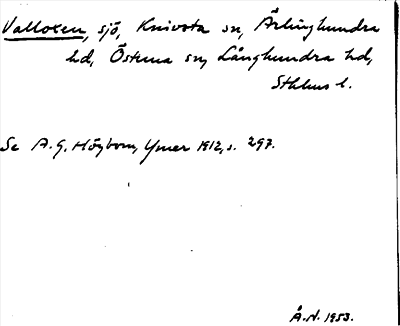 Valloxen, sjö, Knivsta sn, Ärlinghundra
hd, Östuna sn, Långhundra hd,
Sthlms l.
Se A.G. Högbom, Ymer 1912, s. 297.
Å.N. 1953.